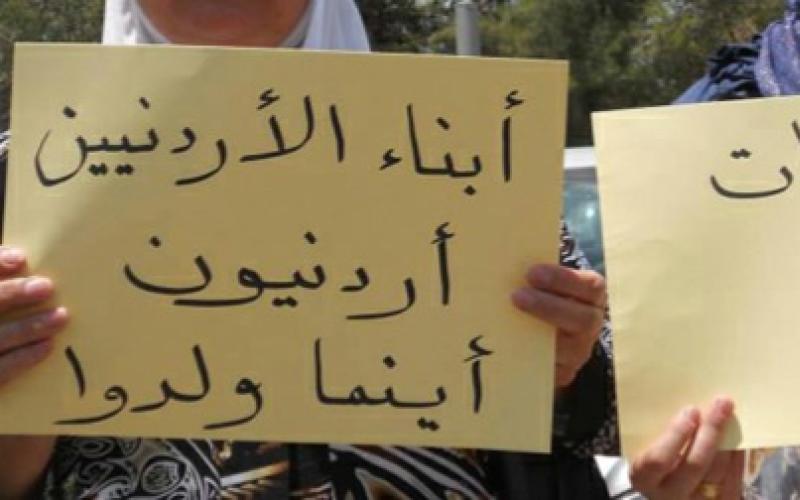 أبناء الأردنيين
أردنيون
أينما ولدوا
ات